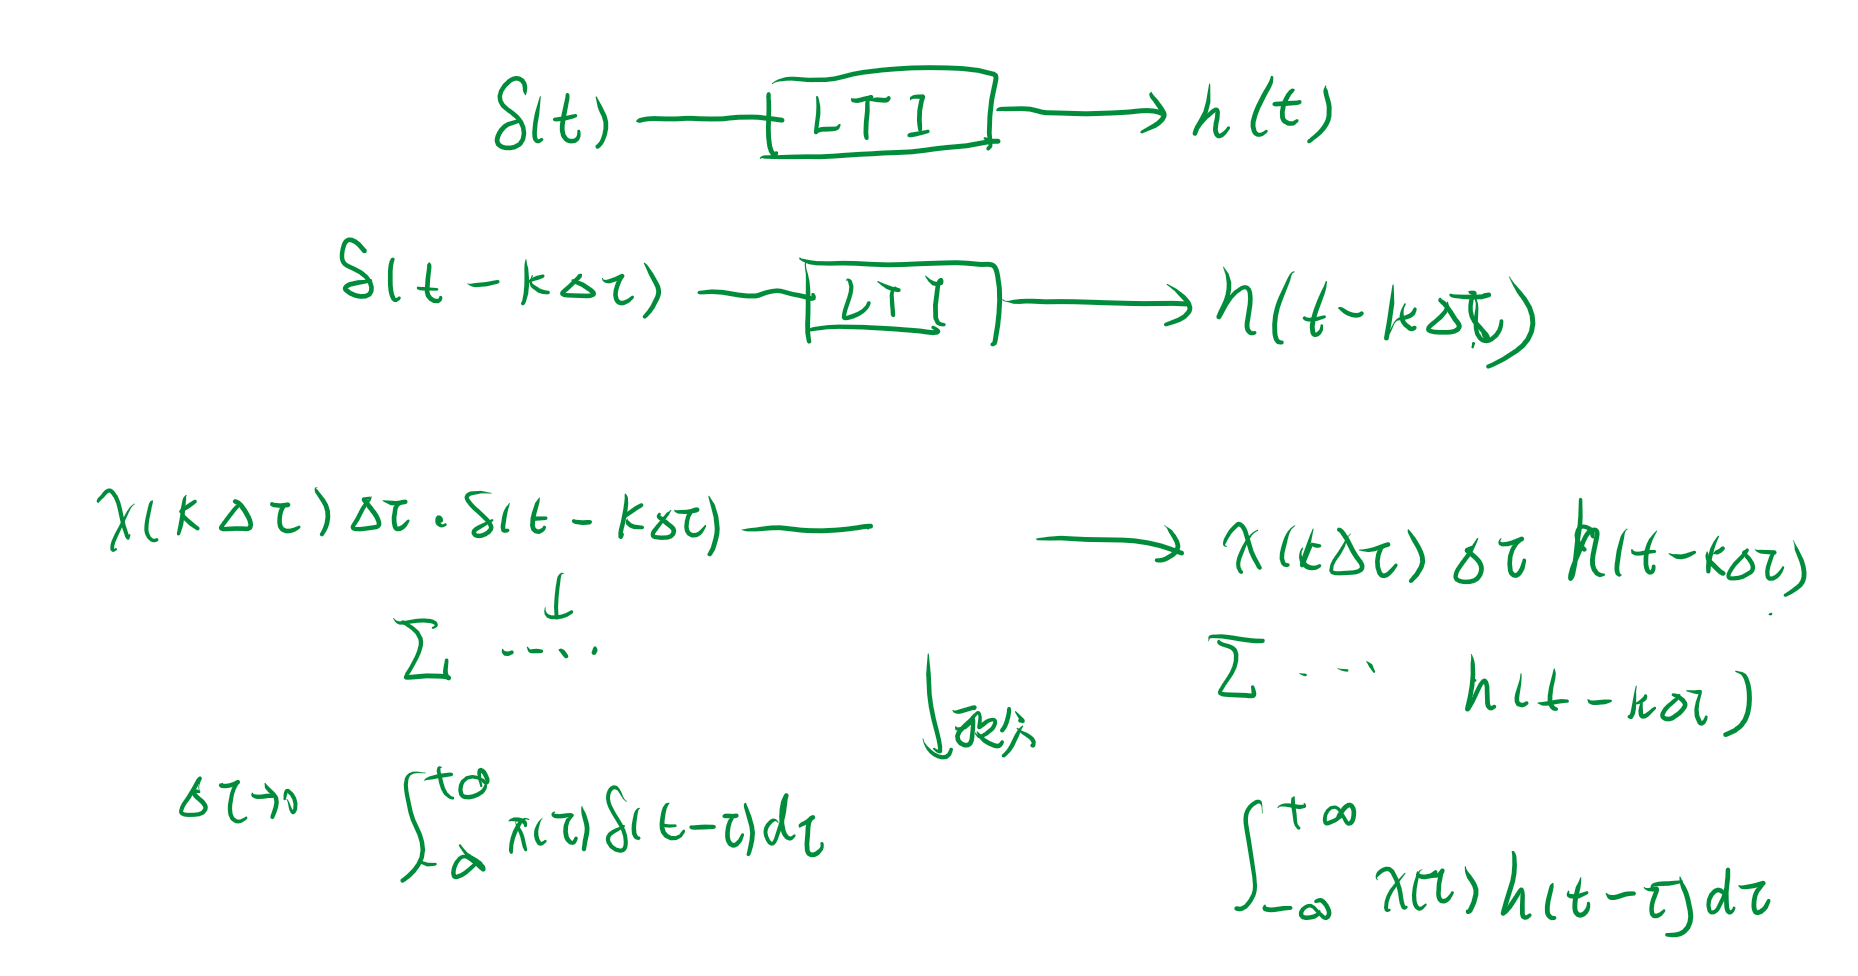 δ(t) — LTI → h(t)
δ(t-kΔτ) — LTI → h(t-kΔτ)
x(kΔτ)Δτ·δ(t-kΔτ) — → x(kΔτ)Δτ h(t-kΔτ)
↓
Σ ····  Σ ··· h(t-kΔτ)
↓ 积分
Δτ→0 ∫_{-∞}^{+∞} x(τ)δ(t-τ)dτ  ∫_{-∞}^{+∞} x(τ)h(t-τ)dτ